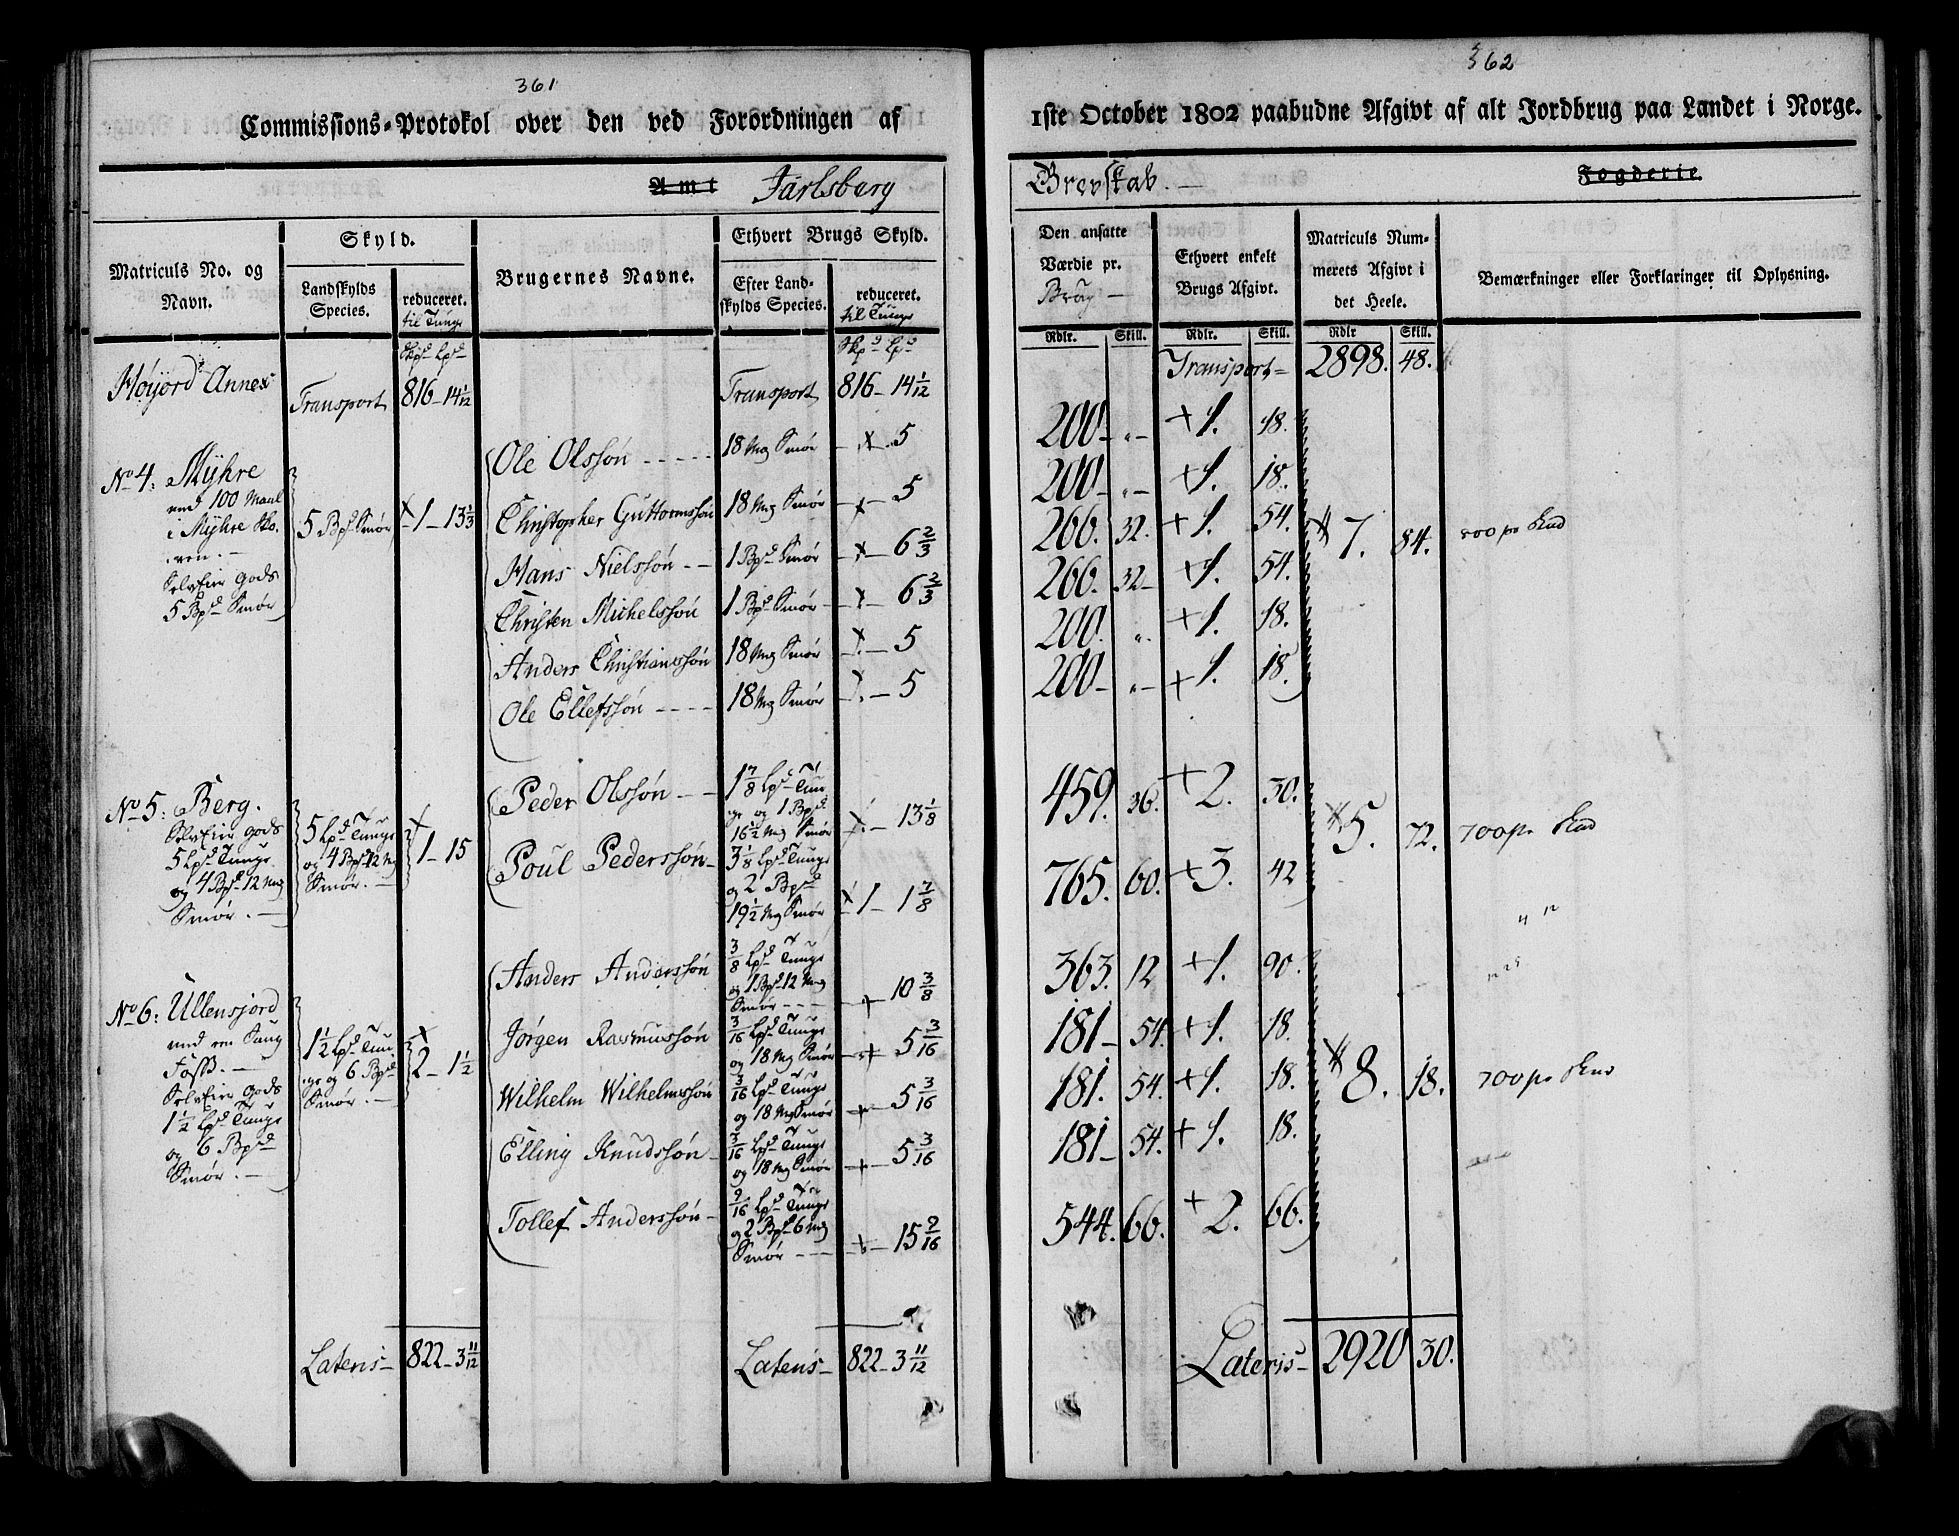 361
Commissions-Protokol over den ved Forordningen af
Amt Jarlsberg
Matriculs No. og Navn.
Skyld.
Landskylds Species.
reduceret.
til Tunge
Brugernes Navne.
Ethvert Brugs Skyld.
Efter Landskylds Species.
reduceret.
til Tunge
Skpd Lpd
Skpd Lpd
Høijord Annex
Transport 816 - 14 1/12
Transport 816 - 14 1/12
No 4: Myhre
med 100 Maal
i Myhre Sko-
ven. -
SelvEier Gods
5 Bpd Smør
5 Bpd Smør
1 - 13 1/3
Ole Olssøn 18 Mg Smør - 5
Christopher Guttormssøn 18 Mg Smør - 5
Hans Nielssøn - 1 Bpd Smør - 6 2/3
Christen Michelssøn 1 Bpd Smør - 6 2/3
Anders Christianssøn 18 Mg Smør - 5
Ole Ellefssøn 18 Mg Smør - 5
No 5: Berg.
SelvEier Gods
5 Lpd Tunge
og 4 Bpd 12 Mg
Smør. -
5 Lpd Tunge
og 4 Bpd 12 Mg
Smør. -
1 - 15
Peder Olssøn - 1 7/8 Lpd Tun-
ge og 1 Bpd
16 1/2 Mg Smør - 13 1/8
Poul Pederssøn - 3 1/8 Lpd Tunge
og 2 Bpd
19 1/2 Mg Smør 1 - 1 7/8
No 6: Ullensjord
med en Saug
Foss. -
SelvEier Gods
1 1/2 Lpd Tunge
og 6 Bpd
Smør. -
1 1/2 Lpd Tun-
ge og 6 Bpd
Smør. -
2 - 1 1/2
Anders Anderssøn 3/8 Lpd Tunge
og 1 Bpd 12 Mg
Smør - 10 3/8
Jørgen Rasmussøn 3/16 Lpd Tunge
og 18 Mg Smør - 5 3/16
Wilhelm Wilhelmssøn 3/16 Lpd Tunge
og 18 Mg Smør - 5 3/16
Elling Knudssøn - 3/16 Lpd Tunge
og 18 Mg Smør - 5 3/16
Tollef Anderssøn - 9/16 Lpd Tunge
og 2 Bpd 6 Mg
Smør - 15 9/16
Lateris - 822 - 3 11/12
Lateris - 822 - 3 11/12
362
1ste October 1802 paabudne Afgivt af alt Jordbrug paa Landet i Norge.
Grevskab. -
Fogderie.
Den ansatte Værdie pr. Brug -
Ethvert enkelt Brugs Afgivt.
Matriculs Nummerets Afgivt i det Heele.
Bemærkninger eller Forklaringer til Oplysning.
Rdlr. Skill. Rdlr. Skill. Rdlr Skill.
Transport - 2898. 48.
200 - „ - + 1. 18.
200 - „ - + 1. 18.
266. 32. + 1. 54.
7. 84.
266. 32 - + 1. 54.
200. „ - + 1. 18.
200 - „ - + 1. 18.
459. 36. + 2. 30.
5. 72. 700
765. 60. + 3. 42
363. 12 + 1. 90.
181 - 54. + 1. 18.
181. 54. + 1. 18.
8. 18. 700
181 - 54. + 1. 18.
544. 66. + 2. 66.
Lateris - 2920 30.